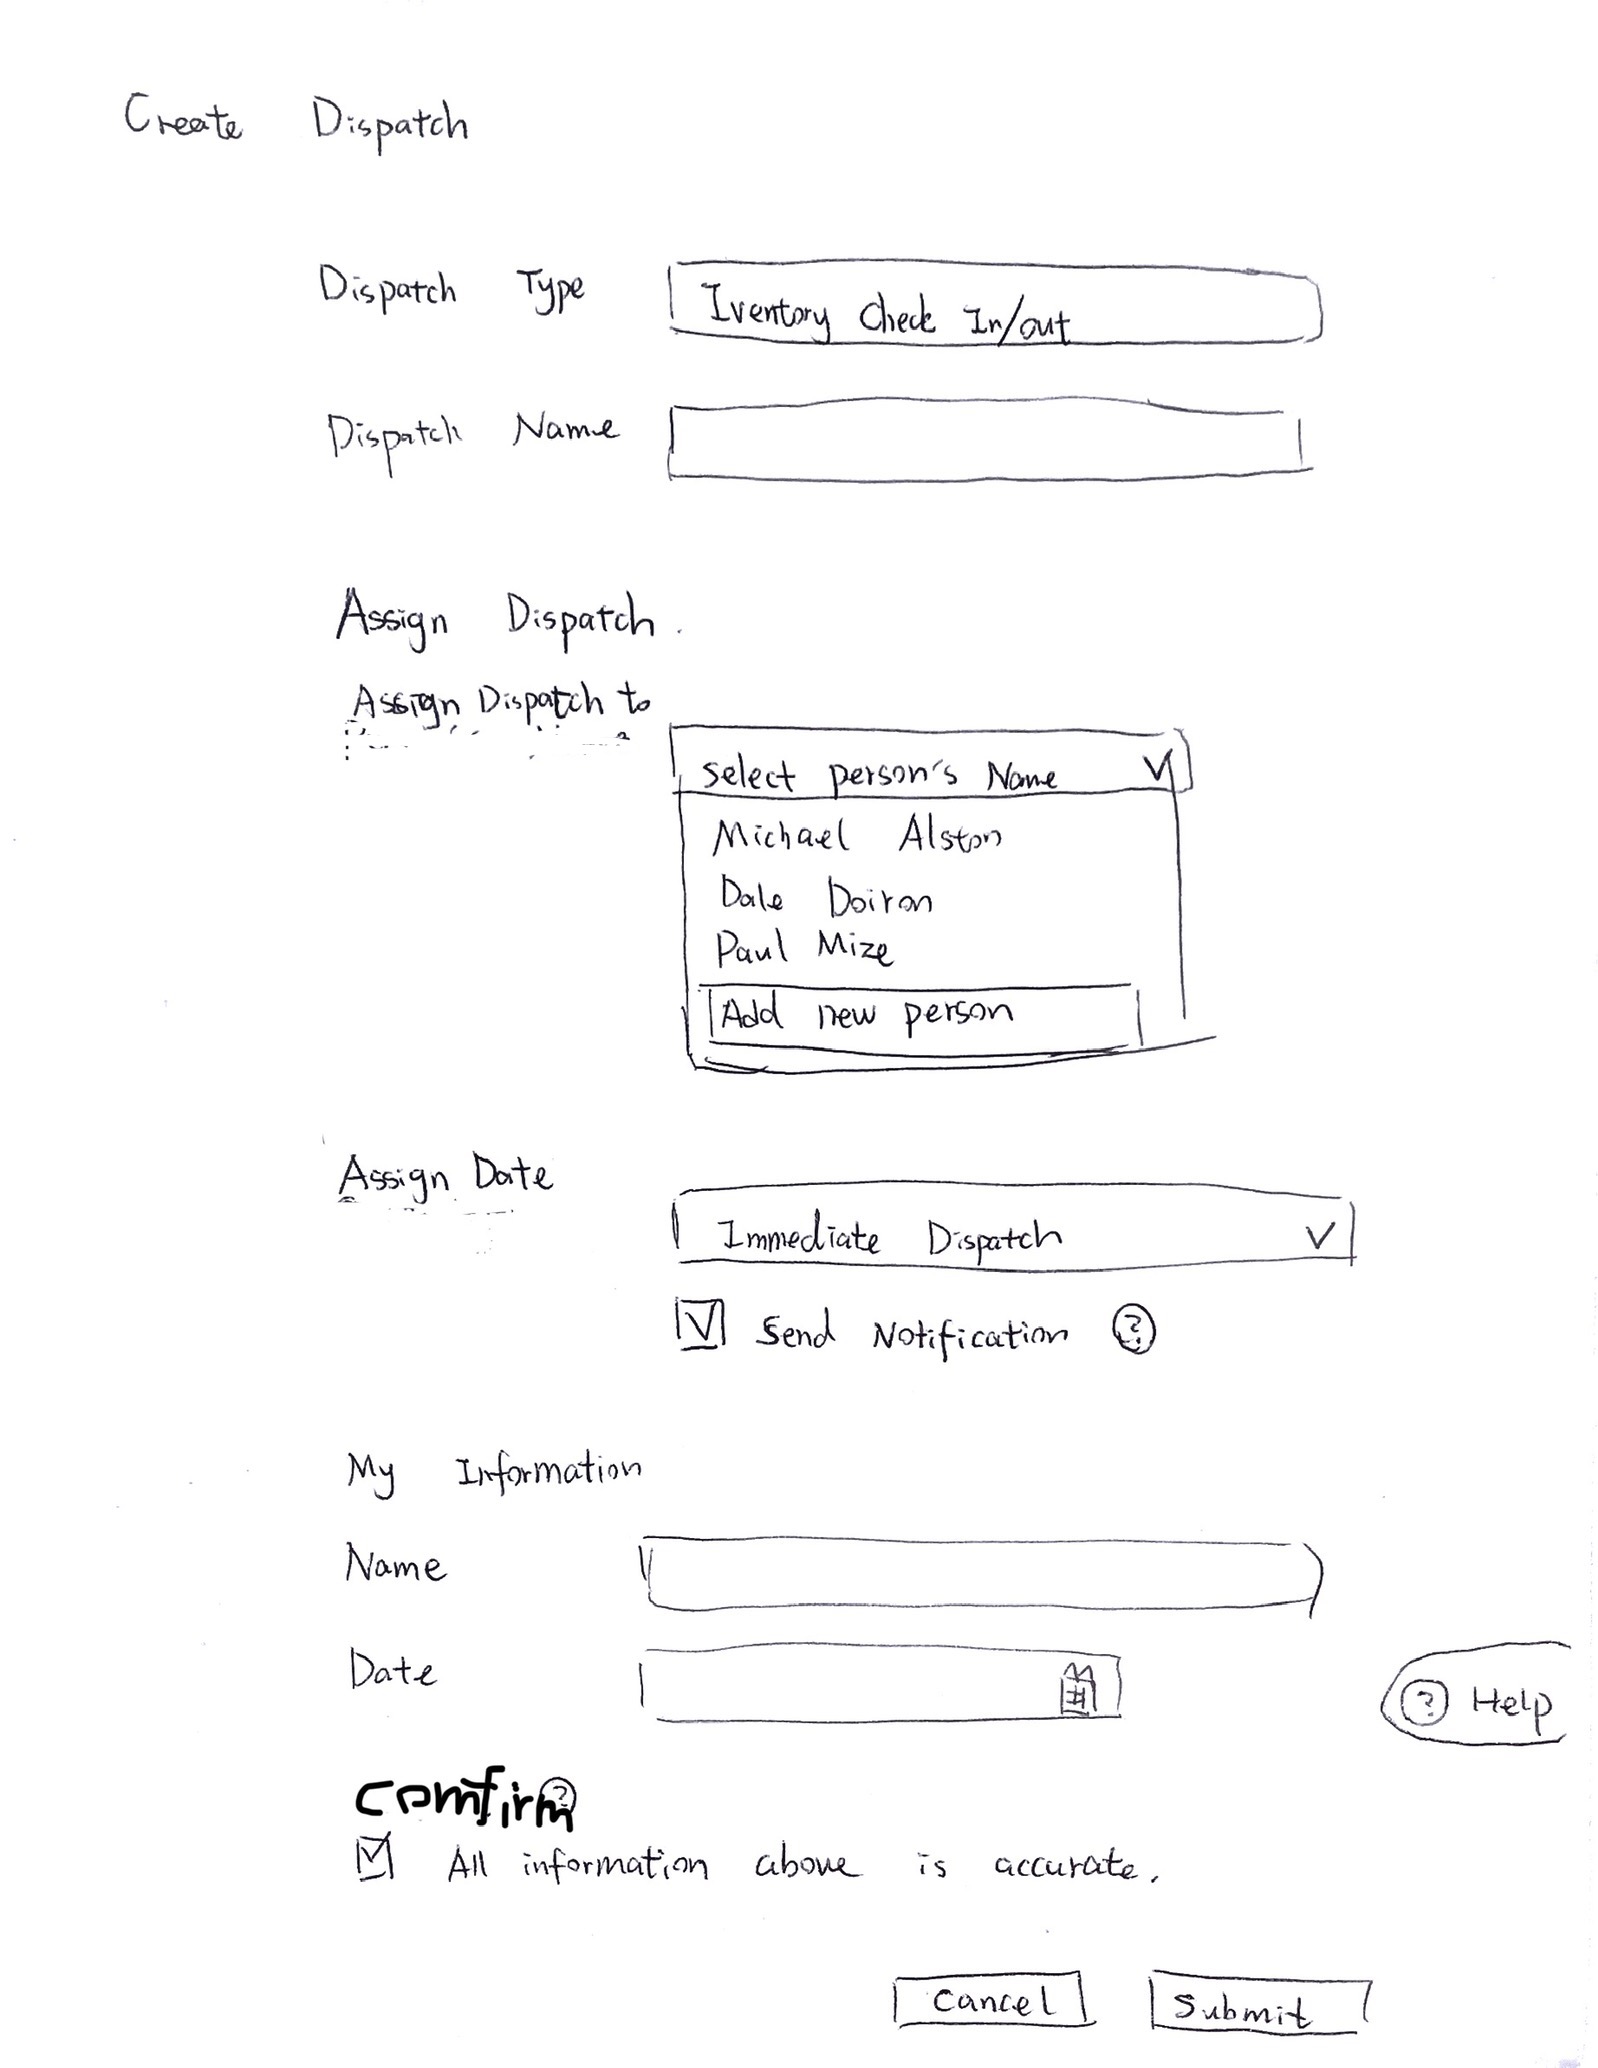 Create Dispatch
Dispatch Type
Iventory Check In/out
Dispatch Name
Assign Dispatch.
Assign Dispatch to
select person's Name
Michael Alston
Dale Doiron
Paul Mize
Add new person
Assign Date
Immediate Dispatch
Send Notification ?
My Information
Name
Date
? Help
comfirm ?
All information above is accurate.
Cancel Submit